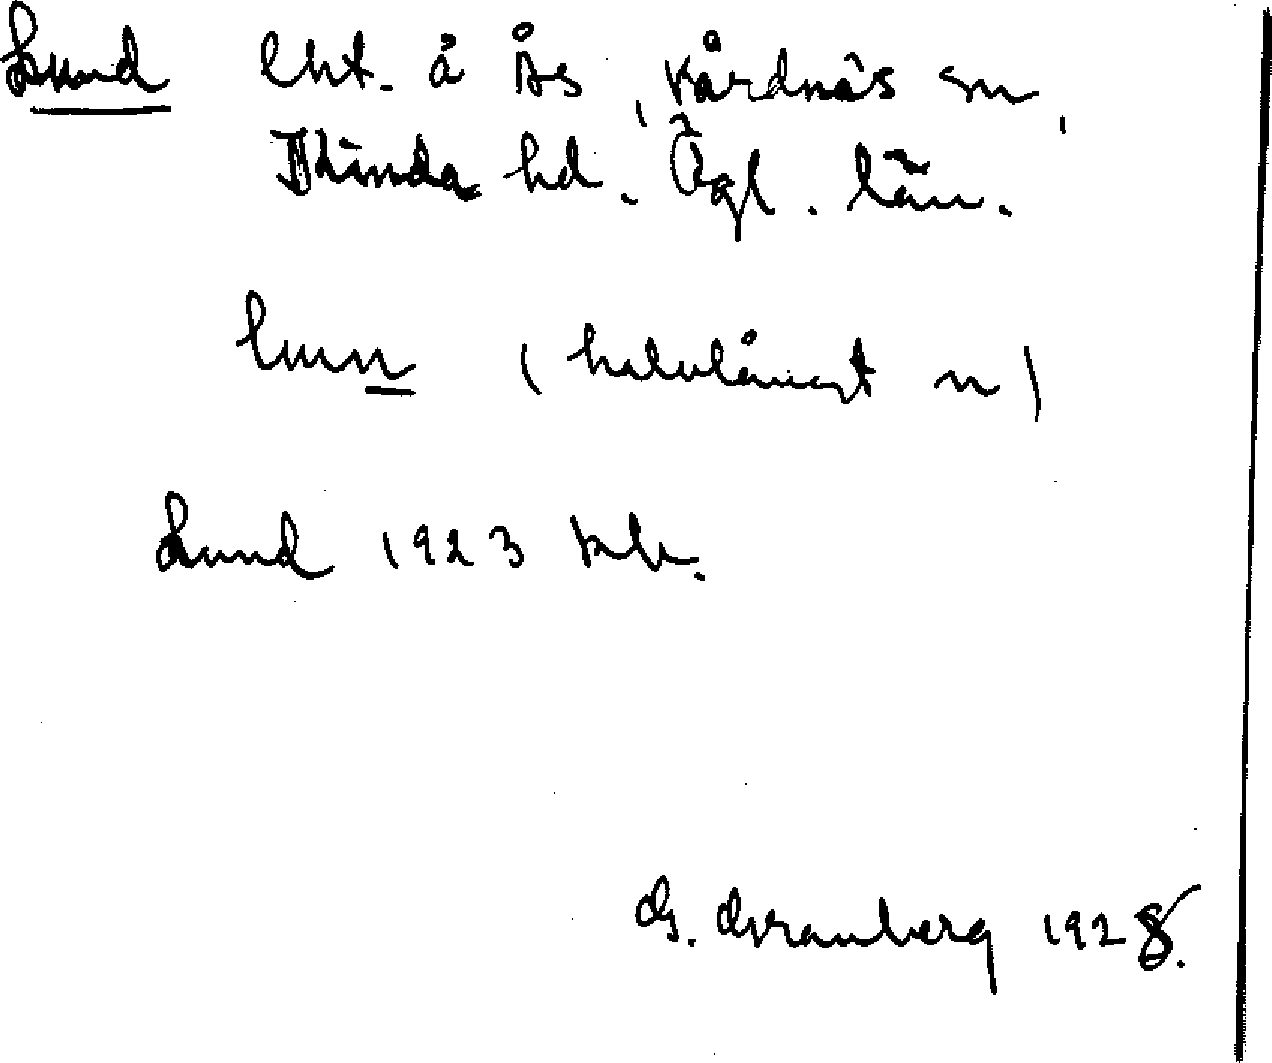 Lund lht. å Ås, Vårdnäs sn,
Kinda hd. Ögl. län.
lunn (halvlångt n)
Lund 1923 kb.
G. Granberg 1928.